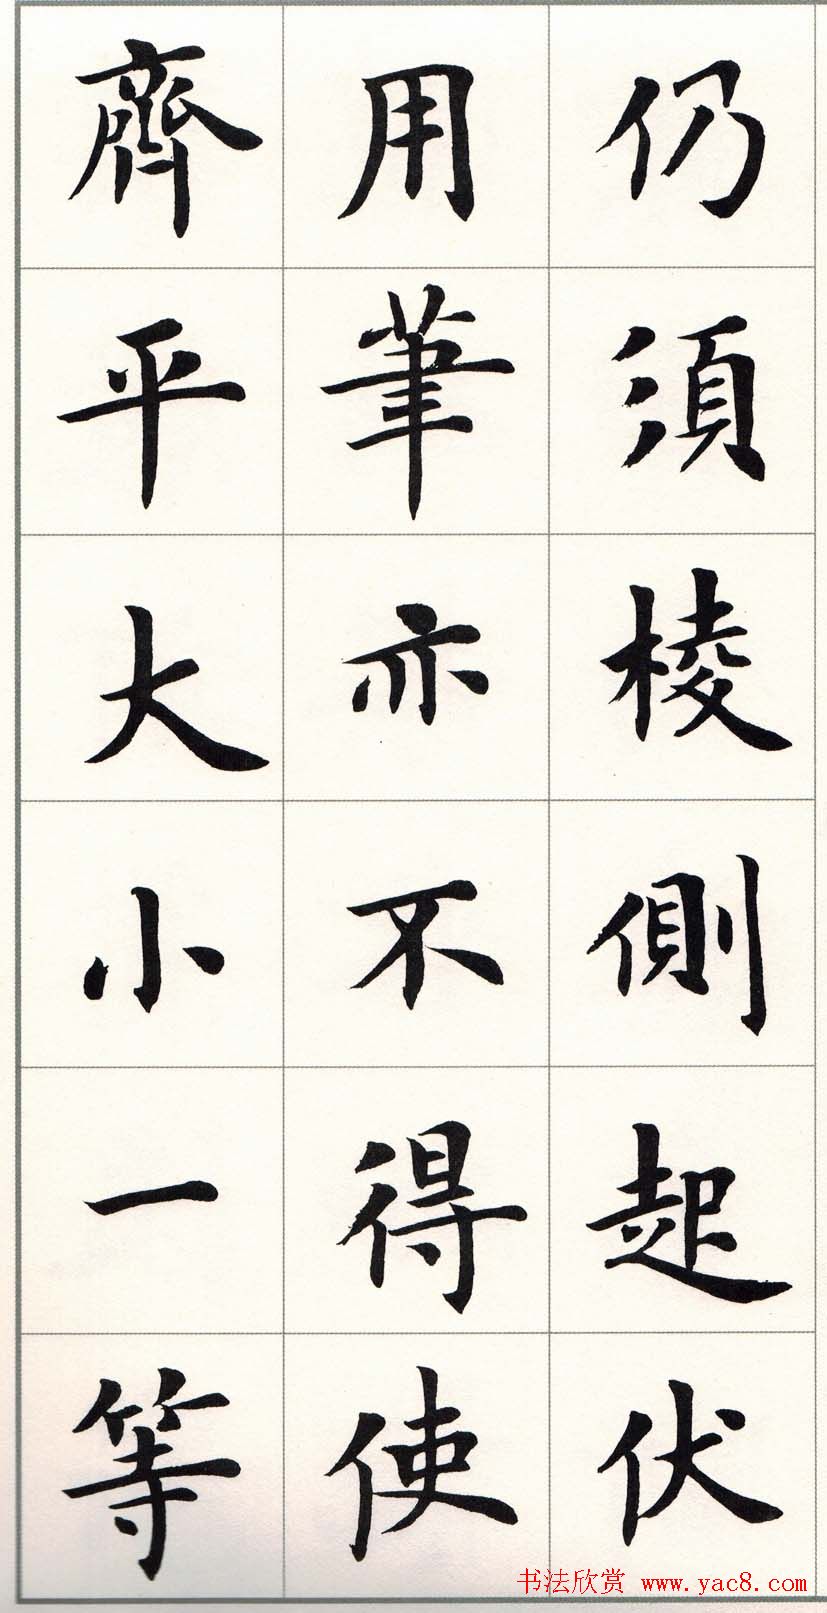 仍須棱側起伏
用筆亦不得使
齊平大小一等
书法欣赏 www.yac8.com